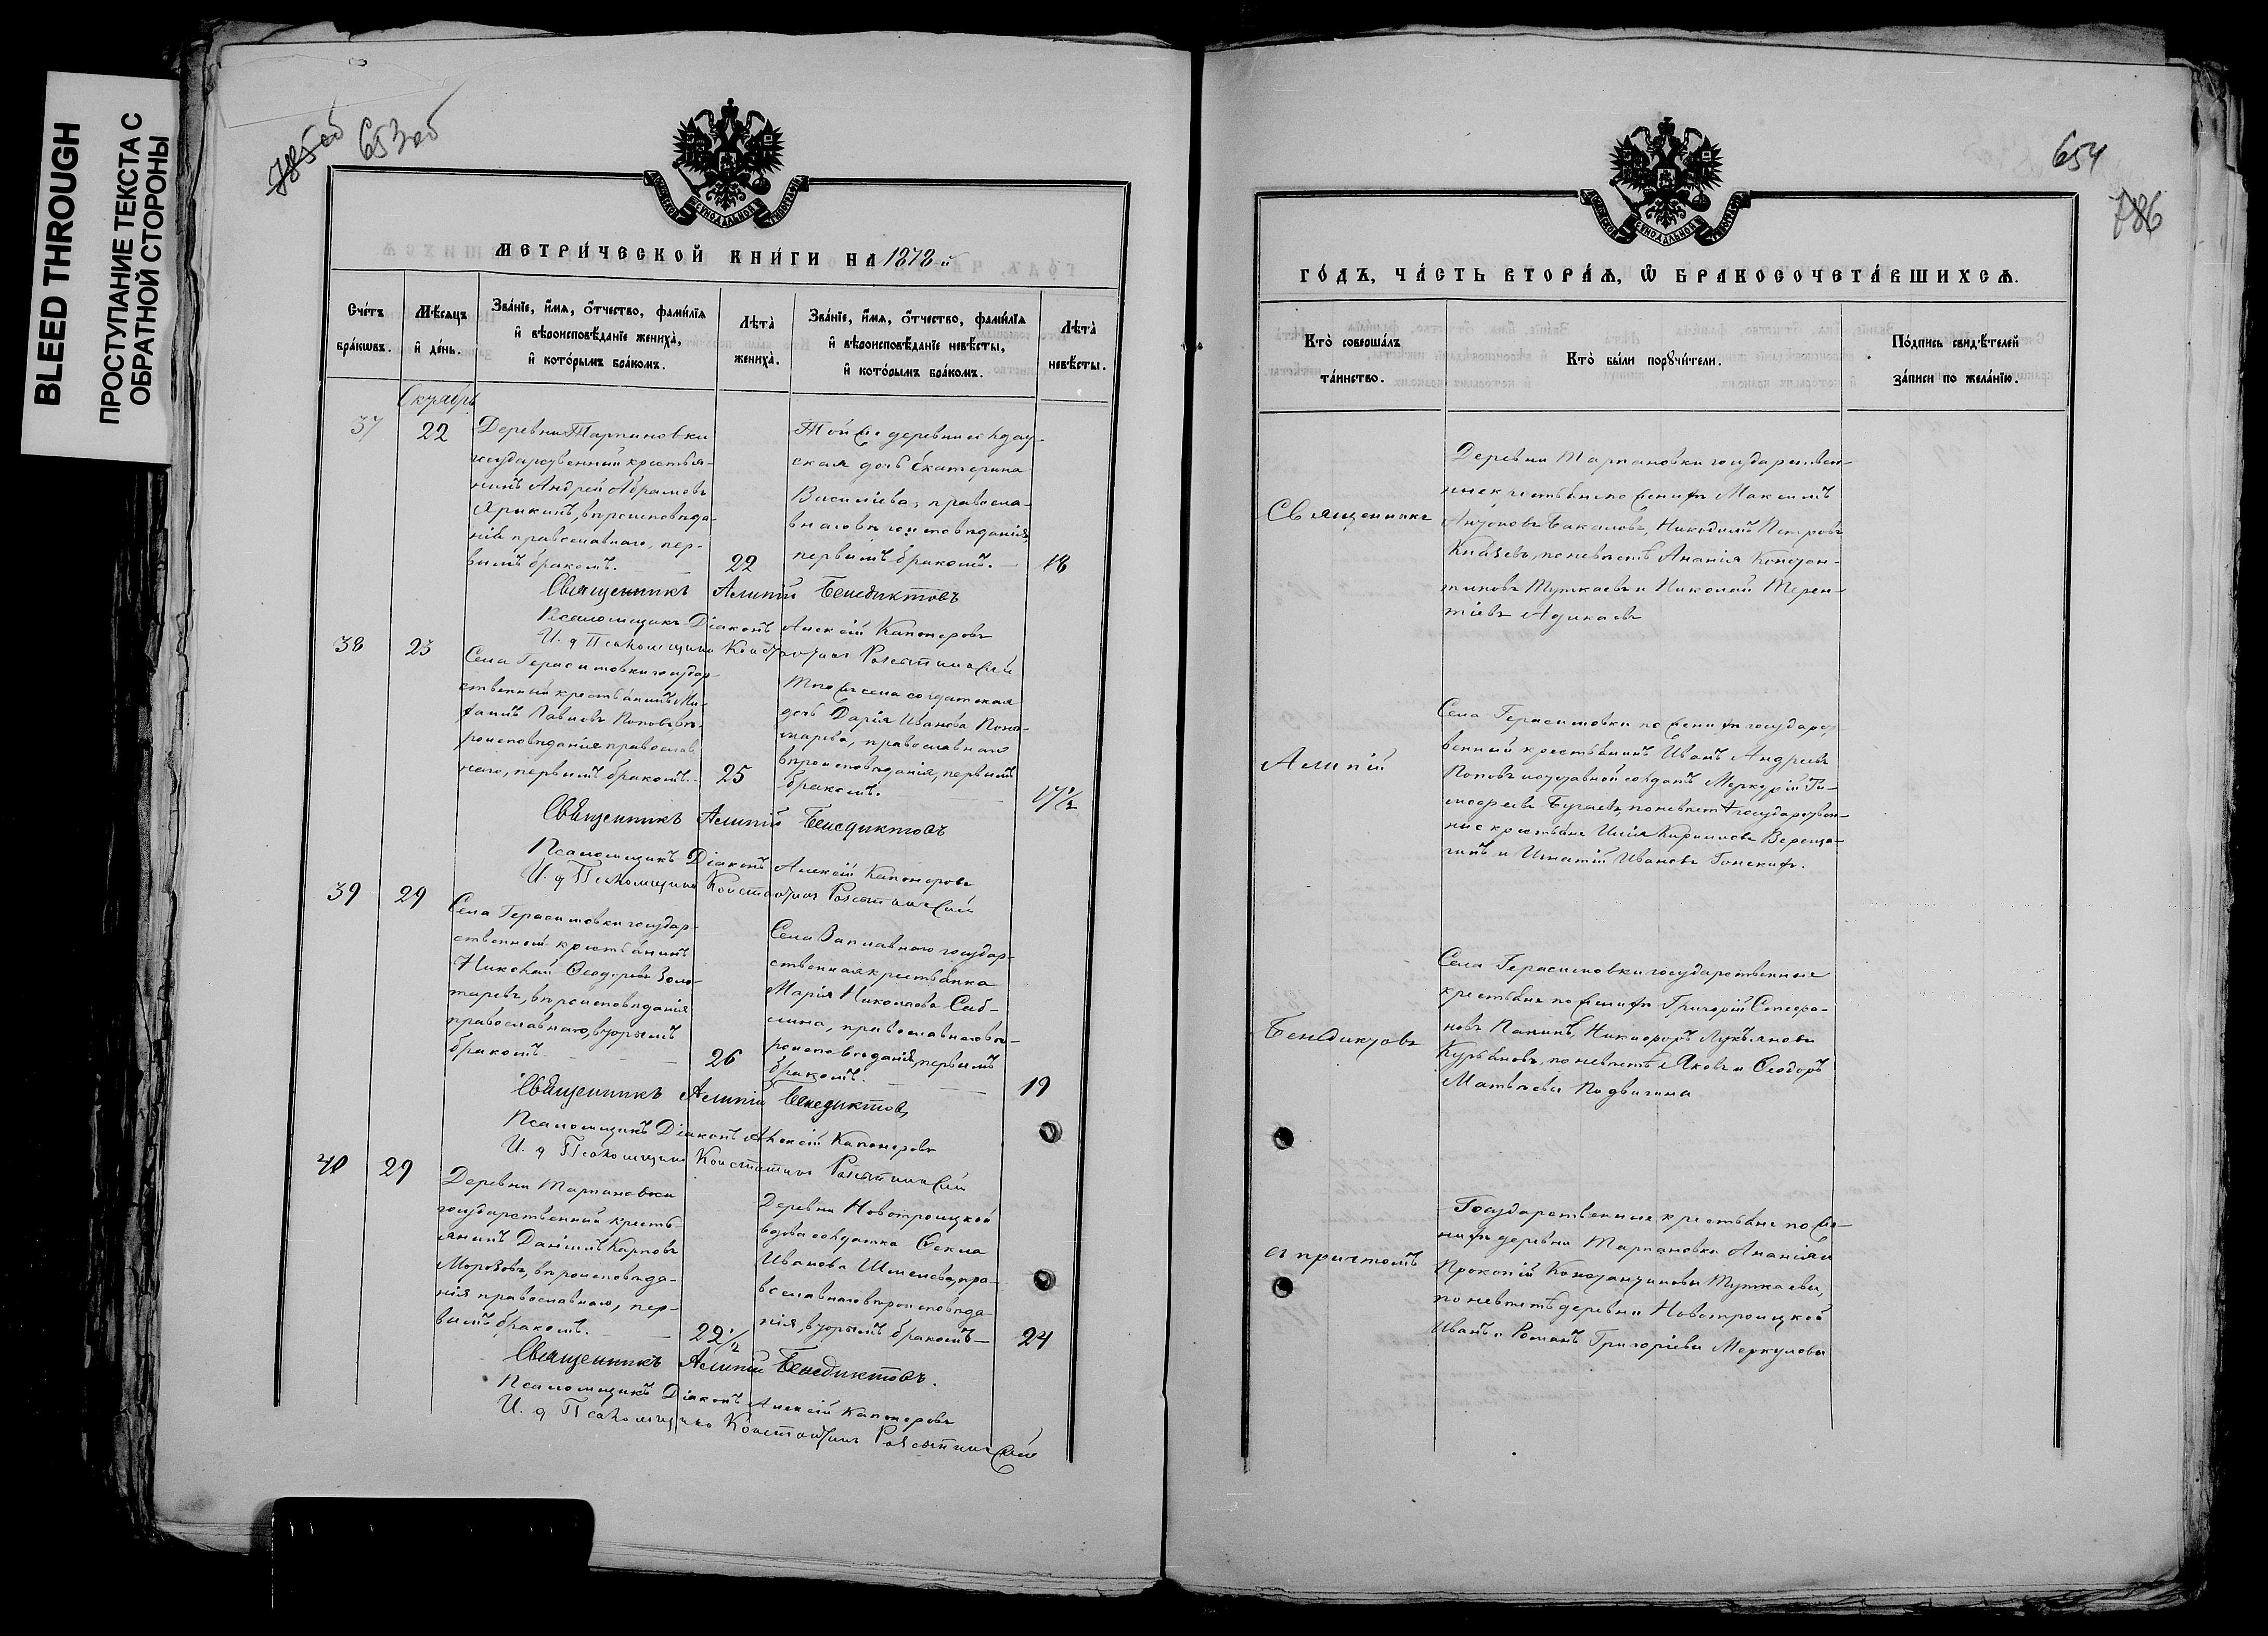 BLEED THROUGH
ПРОСТУПАНИЕ ТЕКСТА С
ОБРАТНОЙ СТОРОНЫ
785об 653об
МЕТРИ́ЧЕСКОЙ КНИ́ГИ НА 1878й
Сче́тъ бра́кωвъ.
Мѣ́сяцъ и҆ де́нь.
Зва́нїе, и҆́мѧ, ѻ҆́тчество, фами́лїѧ и҆ вѣроисповѣ́данїе жениха̀, и҆ кото́рымъ бра́комъ.
Лѣта̀ жениха̀.
Зва́нїе, и҆́мѧ, ѻ҆́тчество, фами́лїѧ и҆ вѣроисповѣ́данїе невѣ́сты, и҆ кото́рымъ бра́комъ.
Лѣта̀ невѣ́сты.
Октябрь
37
22
Деревни Тарпановки
государственный крестья-
нинъ Андрей Абрамовъ
Ярыкинъ, вѣроисповѣда-
нія православнаго, пер-
вымъ бракомъ.
22
Той же деревни солдат-
ская дочь Екатерина
Василіева, правосла-
внаго вѣроисповѣданія,
первымъ бракомъ.
18
Священникъ Алипій Бенедиктовъ
Псаломщикъ Діаконъ Алексій Капонеровъ
И. д Псаломщика Константинъ
38
23
Села Герасимовки государ-
ственный крестьянинъ
Поповъ, вѣ-
роисповѣданія православ-
наго, первымъ бракомъ.
25
Того же села солдатская
дочь Дарія Иванова Поно-
марева, православнаго
вѣроисповѣданія, первымъ
бракомъ.
17½
Священникъ Алипій Бенедиктовъ
Псаломщикъ Діаконъ Алексій Капонеровъ
И. д Псаломщика Константинъ
39
29
Села Герасимовки государ-
ственный крестьянинъ
Николай Ѳеодоровъ Золо-
таревъ, вѣроисповѣданія
православнаго, вторымъ
бракомъ.
26
Села Заплавнаго государ-
ственная крестьянка
Марія Николаева Саб-
лина, православнаго вѣ-
роисповѣданія, первымъ
бракомъ.
19
Священникъ Алипій Бенедиктовъ
Псаломщикъ Діаконъ Алексій Капонеровъ
И. д Псаломщика Константинъ
40
29
Деревни Тарпановки
государственный кресть-
янинъ Даніилъ Карповъ
Морозовъ, вѣроисповѣда-
нія православнаго, пер-
вымъ бракомъ.
22½
Деревни Новотроицкой
вдова солдатка Ѳекла
Иванова Шмелева, пра-
вославнаго вѣроисповѣда-
нія, вторымъ бракомъ
24
Священникъ Алипій Бенедиктовъ.
Псаломщикъ Діаконъ Алексій Капонеровъ
И. д Псаломщика Константинъ
654
786
ГО́ДЪ, ЧА́СТЬ ВТОРА́Я, Ѡ҆ БРАКОСОЧЕТА́ВШИХСЯ.
Кто̀ соверша́лъ та́инство.
Кто̀ бы́ли порꙋчи́тели.
По́дпись свидѣ́телей за́писи по жела́нїю.
Священникъ
Деревни Тарпановки государствен-
ные крестьяне по женихѣ Максимъ
Антоновъ Бакаловъ, Никодимъ Петровъ
Князевъ, по невѣстѣ Ананія Констан-
тиновъ Туткаевъ и Николай Терен-
тіевъ
Алипій
Села Герасимовки по женихѣ государст
венный крестьянинъ Иванъ Андреевъ
Поповъ и отставной солдатъ Меркурій Ти-
моѳеевъ Бугаевъ, по невѣстѣ государствен-
ные крестьяне Илія Кириловъ Вереща-
гинъ и Игнатій Ивановъ
Бенедиктовъ
Села Герасимовки государственные
крестьяне по женихѣ Григорій Стефа-
новъ Папинъ, Никифоръ Лукьяновъ
Курьяновъ, по невѣстѣ Яковъ и Ѳеодоръ
Матвѣевы Подвигина
съ причтомъ
Государственные крестьяне по же-
нихѣ деревни Тарпановки Ананія и
Прокопій Константиновы Туткаевы,
по невѣстѣ деревни Новотроицкой
Иванъ и Романъ Григоріевы Меркуловы